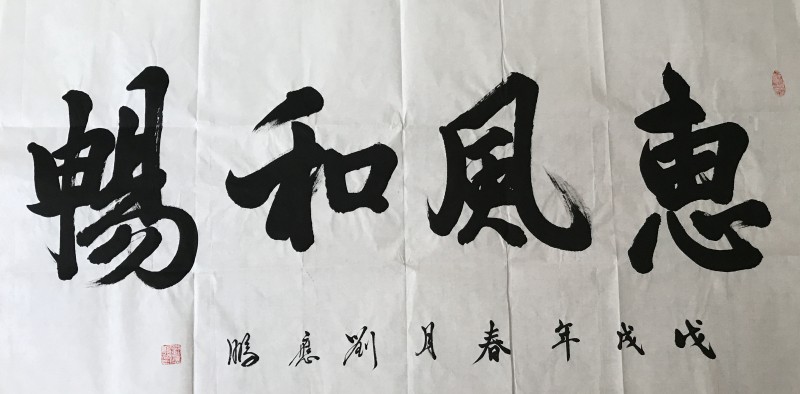 惠風和暢
戊戌年春月劉應鵬